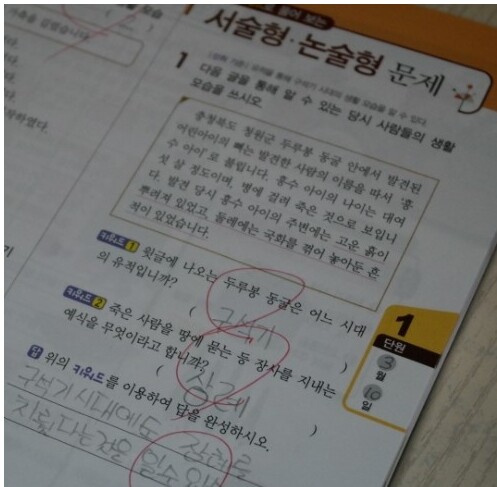 서술형·논술형 문제
1 다음 글을 통해 알 수 있는 당시 사람들의 생활
모습을 쓰시오.
충청북도 청원군 두루봉 동굴 안에서 발견된
어린아이의 뼈는 발견한 사람의 이름을 따서 '흥
수 아이'로 불립니다. 흥수 아이의 나이는 대여
섯 살 정도이며, 병에 걸려 죽은 것으로 보입니
다. 발견 당시 흥수 아이의 주변에는 고운 흙이
뿌려져 있었고, 둘레에는 국화를 꺾어 놓아둔 흔
적이 있었습니다.
키워드 1 윗글에 나오는 두루봉 동굴은 어느 시대
의 유적입니까?
( 구석기 )
키워드 2 죽은 사람을 땅에 묻는 등 장사를 지내는
예식을 무엇이라고 합니까?
( 상례 )
답 위의 키워드를 이용하여 답을 완성하시오.
구석기 시대에도 장례를
치렀다는 것을 알 수 있
1
단원
3
월
10
일